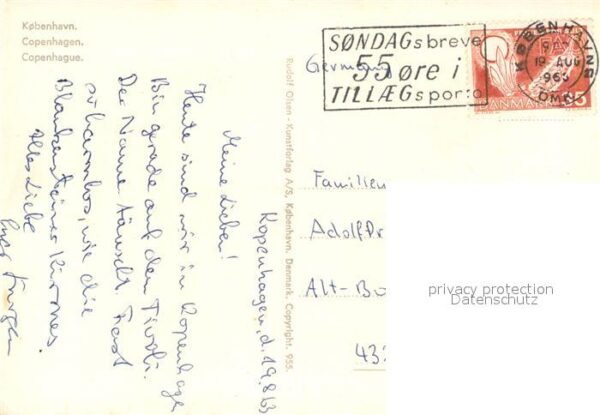 København.
Copenhagen.
Copenhague.
SØNDAGsbreve
55 øre i
TILLÆGsporto
KØBENHAVN
19 AUG
1963
OMK
DANMARK 35
Germany
Rudolf Olsen - Kunstforlag A/S, København. Denmark. Copyright. 955.
Kopenhagen, d. 19.8.63
Meine Lieben!
Heute sind wir in Kopenhage
Bin grade auf dem Tivoli.
Der Name täuscht. Fast
so harmlos, wie die
Blankensteiner Kirmes.
Alles Liebe
Euer Jürgen
Familien
Adolf
Alt-B
43
privacy protection
Datenschutz